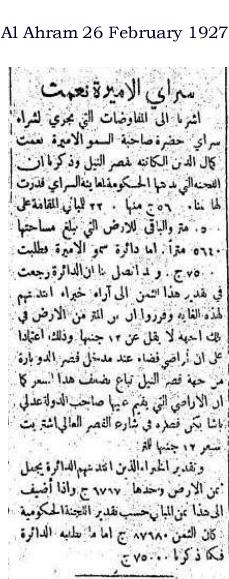 Al Ahram 26 February 1927
سراي الاميرة نعمت
اشرنا الى المفاوضات التي تجري لشراء
سراي حضرة صاحبة السمو الاميرة نعمت
كمال الدين الكائنة بقصر النيل وذكرنا ان
اللجنة التي ندبتها الحكومة لمعاينة السراي قدرت
لها ثمنا ج منها للمباني المقامة على
متر والباقي للارض التي تبلغ مساحتها
٥٦٤٠ مترا. اما دائرة سمو الاميرة فطلبت
٧٥٠٠٠ ج. وقد اتصل بنا ان الدائرة رجعت
في تقدير هذا الثمن الى آراء خبراء انتدبتهم
لهذه الغاية وقرروا ان ثمن المتر من الارض في
تلك الجهة لا يقل عن ١٢ جنيها وذلك اعتمادا
على ان اراضي فضاء عند مدخل قصر الدوبارة
من جهة قصر النيل تباع بضعف هذا السعر كما
ان الاراضي التي يقيم عليها صاحب الدولة عدلي
باشا يكن قصره في شارع القصر العالي اشتريت
بسعر ١٢ جنيها للمتر
وتقدير الخبراء الذين انتدبتهم الدائرة يجعل
ثمن الارض وحدها ج واذا أضيف
الى هذا ثمن المباني حسب تقدير اللجنة الحكومية
كان الثمن ج اما ما تطلبه الدائرة
فكما ذكرنا ٧٥٠٠٠ ج